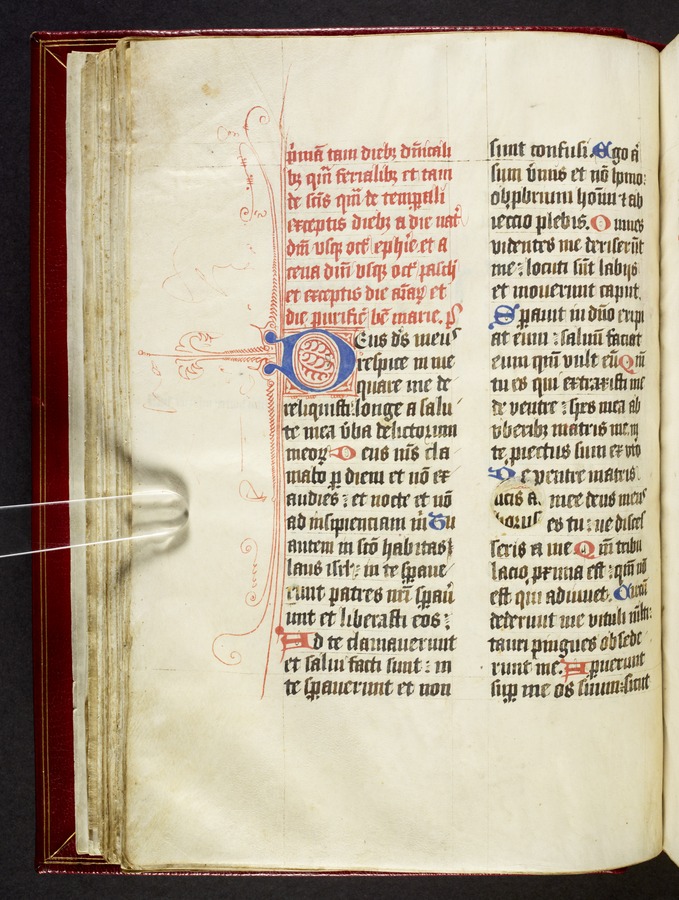 p̄mā tam dieb⁊ dn̄icali
b⁊ qm̄ ferialib⁊ et tam
de sc̄is qm̄ de temp̱ali
exceptis dieb⁊ a die nat᷑
dn̄i vsq⁊ oct᷑ ephīe et a
cena dn̄i vsq⁊ oct᷑ pasch᷑
et exceptis die aīaꝝ et
die purific̄ bē marie. p̄s
Deus ds̄ meus
respice in me
quare me de
reliquisti: longe a salu
te mea v̄ba delictorum
meoꝝ Deus m̄s cla
mabo ꝑ diem et nō ex
audies: et nocte et nō
ad insipientiam m̄ Tu
autem in scō habitas
laus isr̄l: in te speraue
runt patres nr̄i spaū
unt et liberasti eos:
Ad te clamauerunt
et salui facti sunt: in
te sp̱auerunt et non
sunt confusi. Ego ā
sum v̄mis et nō homo:
obp̱brium hoīm ⁊ ab
iectio plebis. Omnes
videntes me deriserūt
me: locuti sūt labijs
et mouerunt caput.
Sp̱auit in dn̄o eripi
at eum: saluū faciat
eum qm̄ vult eū Qm̄
tu es qui extraxisti me
de ventre: spes mea ab
vberib⁊ matris mee in
te ꝓiectus sum ex vto
De ventre matris
deus meus
es tu: ne disces
seris a me Qm̄ tribu
lacio ꝓxima est: qm̄ nō
est qui adiuuet. Circū
dederunt me vituli ml̄ti:
tauri pingues obsede
runt me. Apuerunt
suꝑ me os suum: sicut